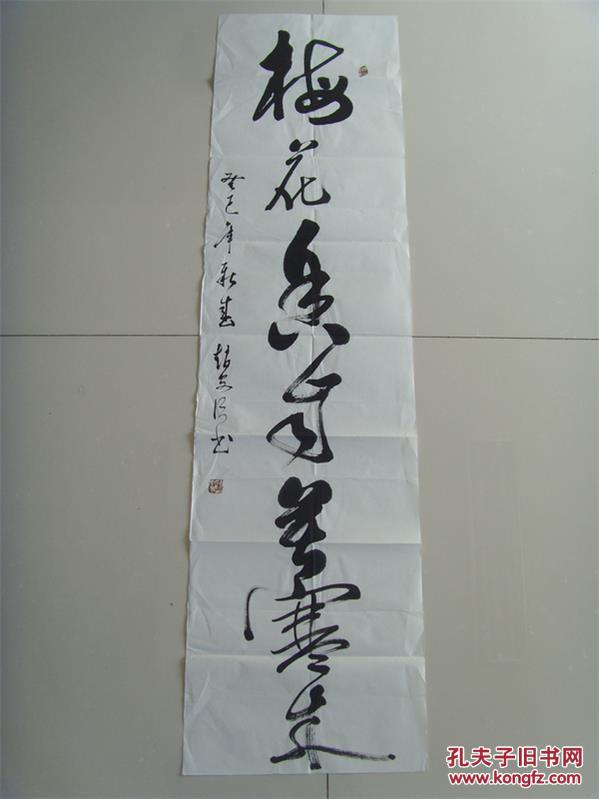 梅花香自苦寒来
癸巳年新春 赵文河书
孔夫子旧书网
www.kongfz.com